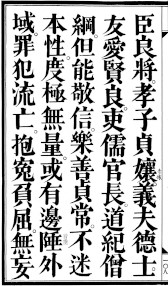 臣良將孝子貞孃義夫德士
友愛賢良吏儒官長道紀僧
綱但能敬信樂善貞常不迷
本性度極無量或有邊陲外
域罪犯流亡抱冤負屈無妄